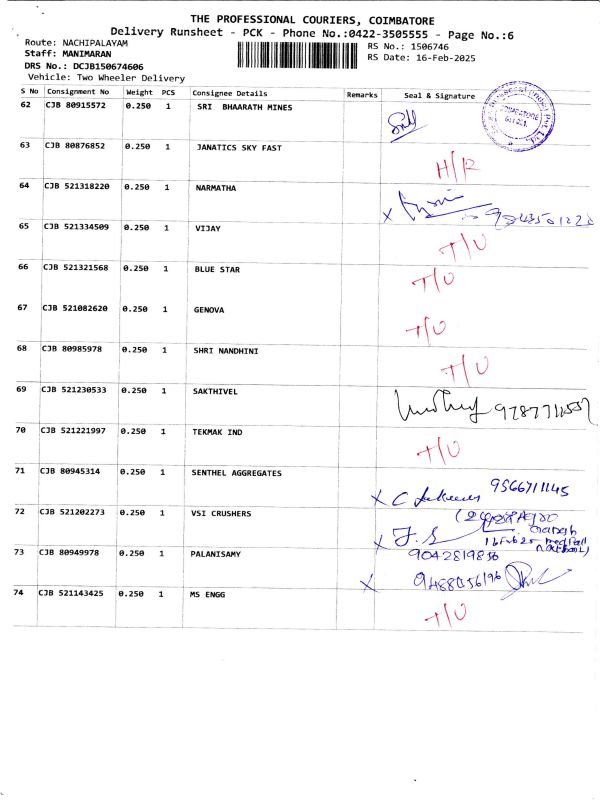 THE PROFESSIONAL COURIERS, COIMBATORE
Delivery Runsheet - PCK - Phone No.:0422-3505555 - Page No.:6
Route: NACHIPALAYAM
RS No.: 1506746
Staff: MANIMARAN
RS Date: 16-Feb-2025
DRS No.: DCJB150674606
Vehicle: Two Wheeler Delivery
S No Consignment No Weight PCS Consignee Details Remarks Seal & Signature
62 CJB 80915572 0.250 1 SRI BHAARATH MINES
63 CJB 80876852 0.250 1 JANATICS SKY FAST H/R
64 CJB 521318220 0.250 1 NARMATHA
65 CJB 521334509 0.250 1 VIJAY T/U
66 CJB 521321568 0.250 1 BLUE STAR T/U
67 CJB 521082620 0.250 1 GENOVA T/U
68 CJB 80985978 0.250 1 SHRI NANDHINI T/U
69 CJB 521230533 0.250 1 SAKTHIVEL
70 CJB 521221997 0.250 1 TEKMAK IND T/U
71 CJB 80945314 0.250 1 SENTHEL AGGREGATES 9566711145
72 CJB 521202273 0.250 1 VSI CRUSHERS
73 CJB 80949978 0.250 1 PALANISAMY
74 CJB 521143425 0.250 1 MS ENGG T/U